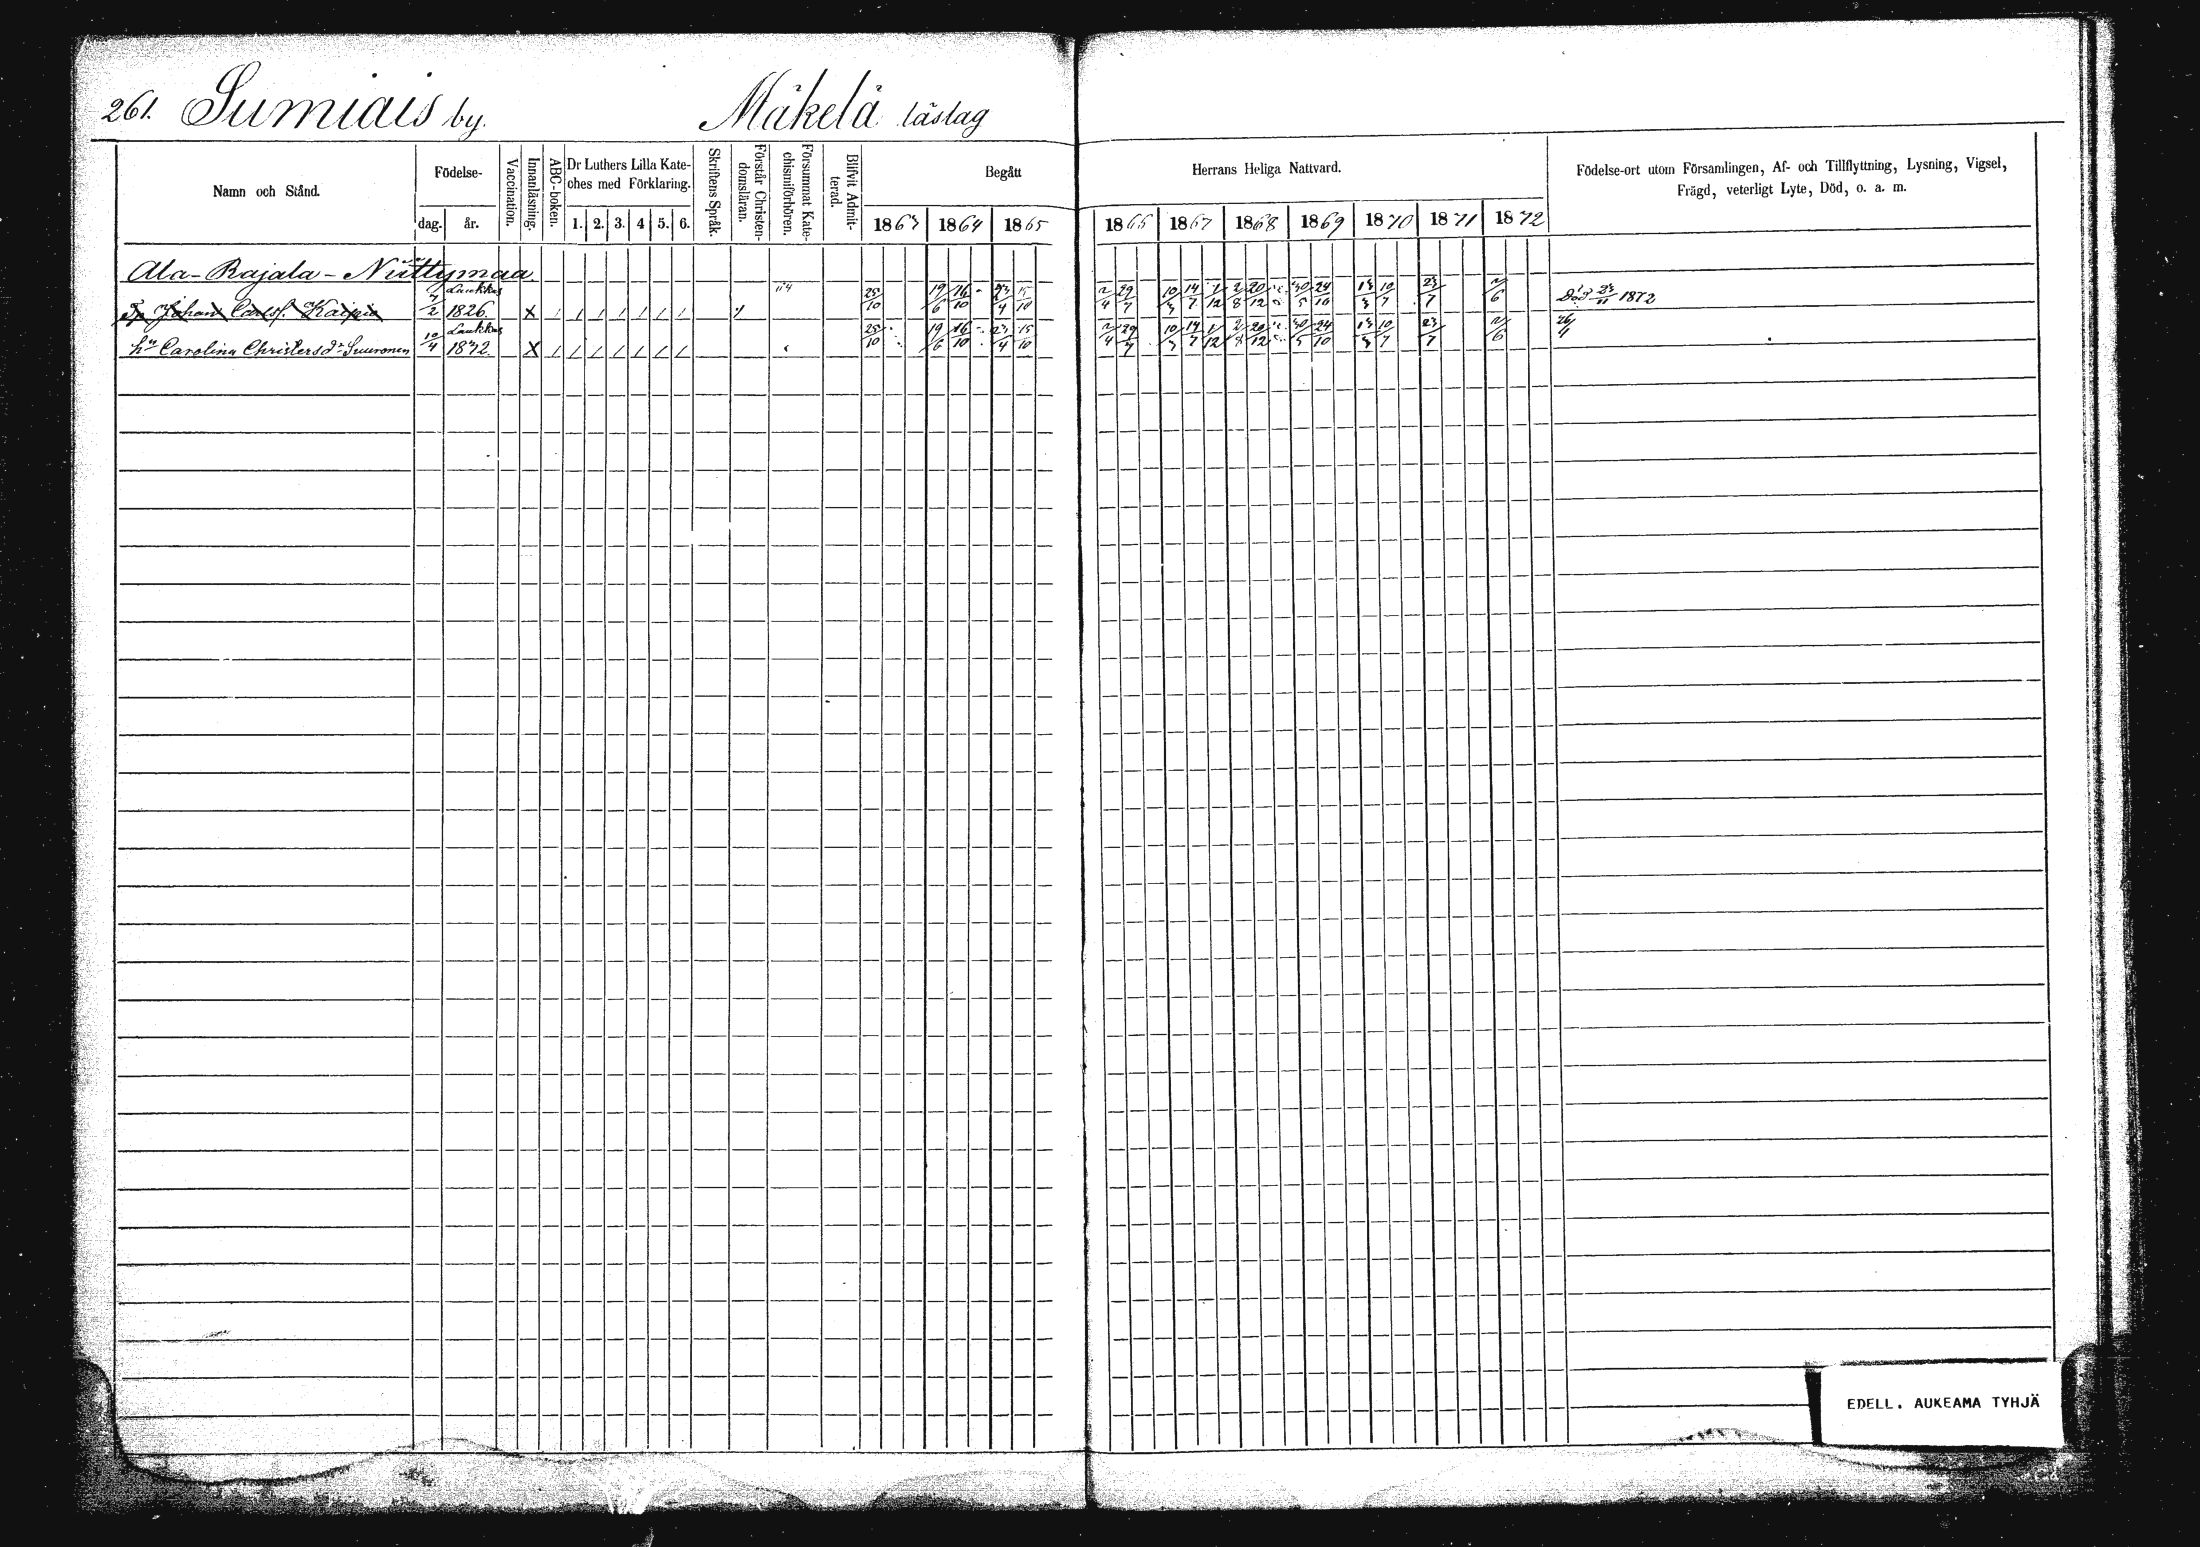 261. Sumiais by. Mäkelä läslag
Namn och Stånd. Födelse- dag. år. Vaccination. Innanläsning. ABC-boken. Dr Luthers Lilla Kateches med Förklaring. 1. 2. 3. 4 5. 6. Skriftens Språk. Förstår Christendomsläran. Försummat Katechismiförhören. Blifvit Admitterad. Begått
1863 1864 1865
Herrans Heliga Nattvard.
1866 1867 1868 1869 1870 1871 1872
Födelse-ort utom Församlingen, Af- och Tillflyttning, Lysning, Vigsel,
Frägd, veterligt Lyte, Död, o. a. m.
Ala-Rajala-Niittymaa
Laukkas
Johan Carlss. Kaipio 7/2 1826. X 25/10 19/6 16/10 23/4 15/10 2/4 29/7 10/3 14/7 1/12 2/8 20/12 30/5 24/10 13/3 10/7 23/7 2/6 Död 23/11 1872
Laukkas
hu Carolina Christersdr Suuronen 10/4 1832. X 25/10 19/6 16/10 23/4 15/10 2/4 29/7 10/3 14/7 1/12 2/8 20/12 30/5 24/10 13/3 10/7 23/7 2/6 26/4
EDELL. AUKEAMA TYHJÄ